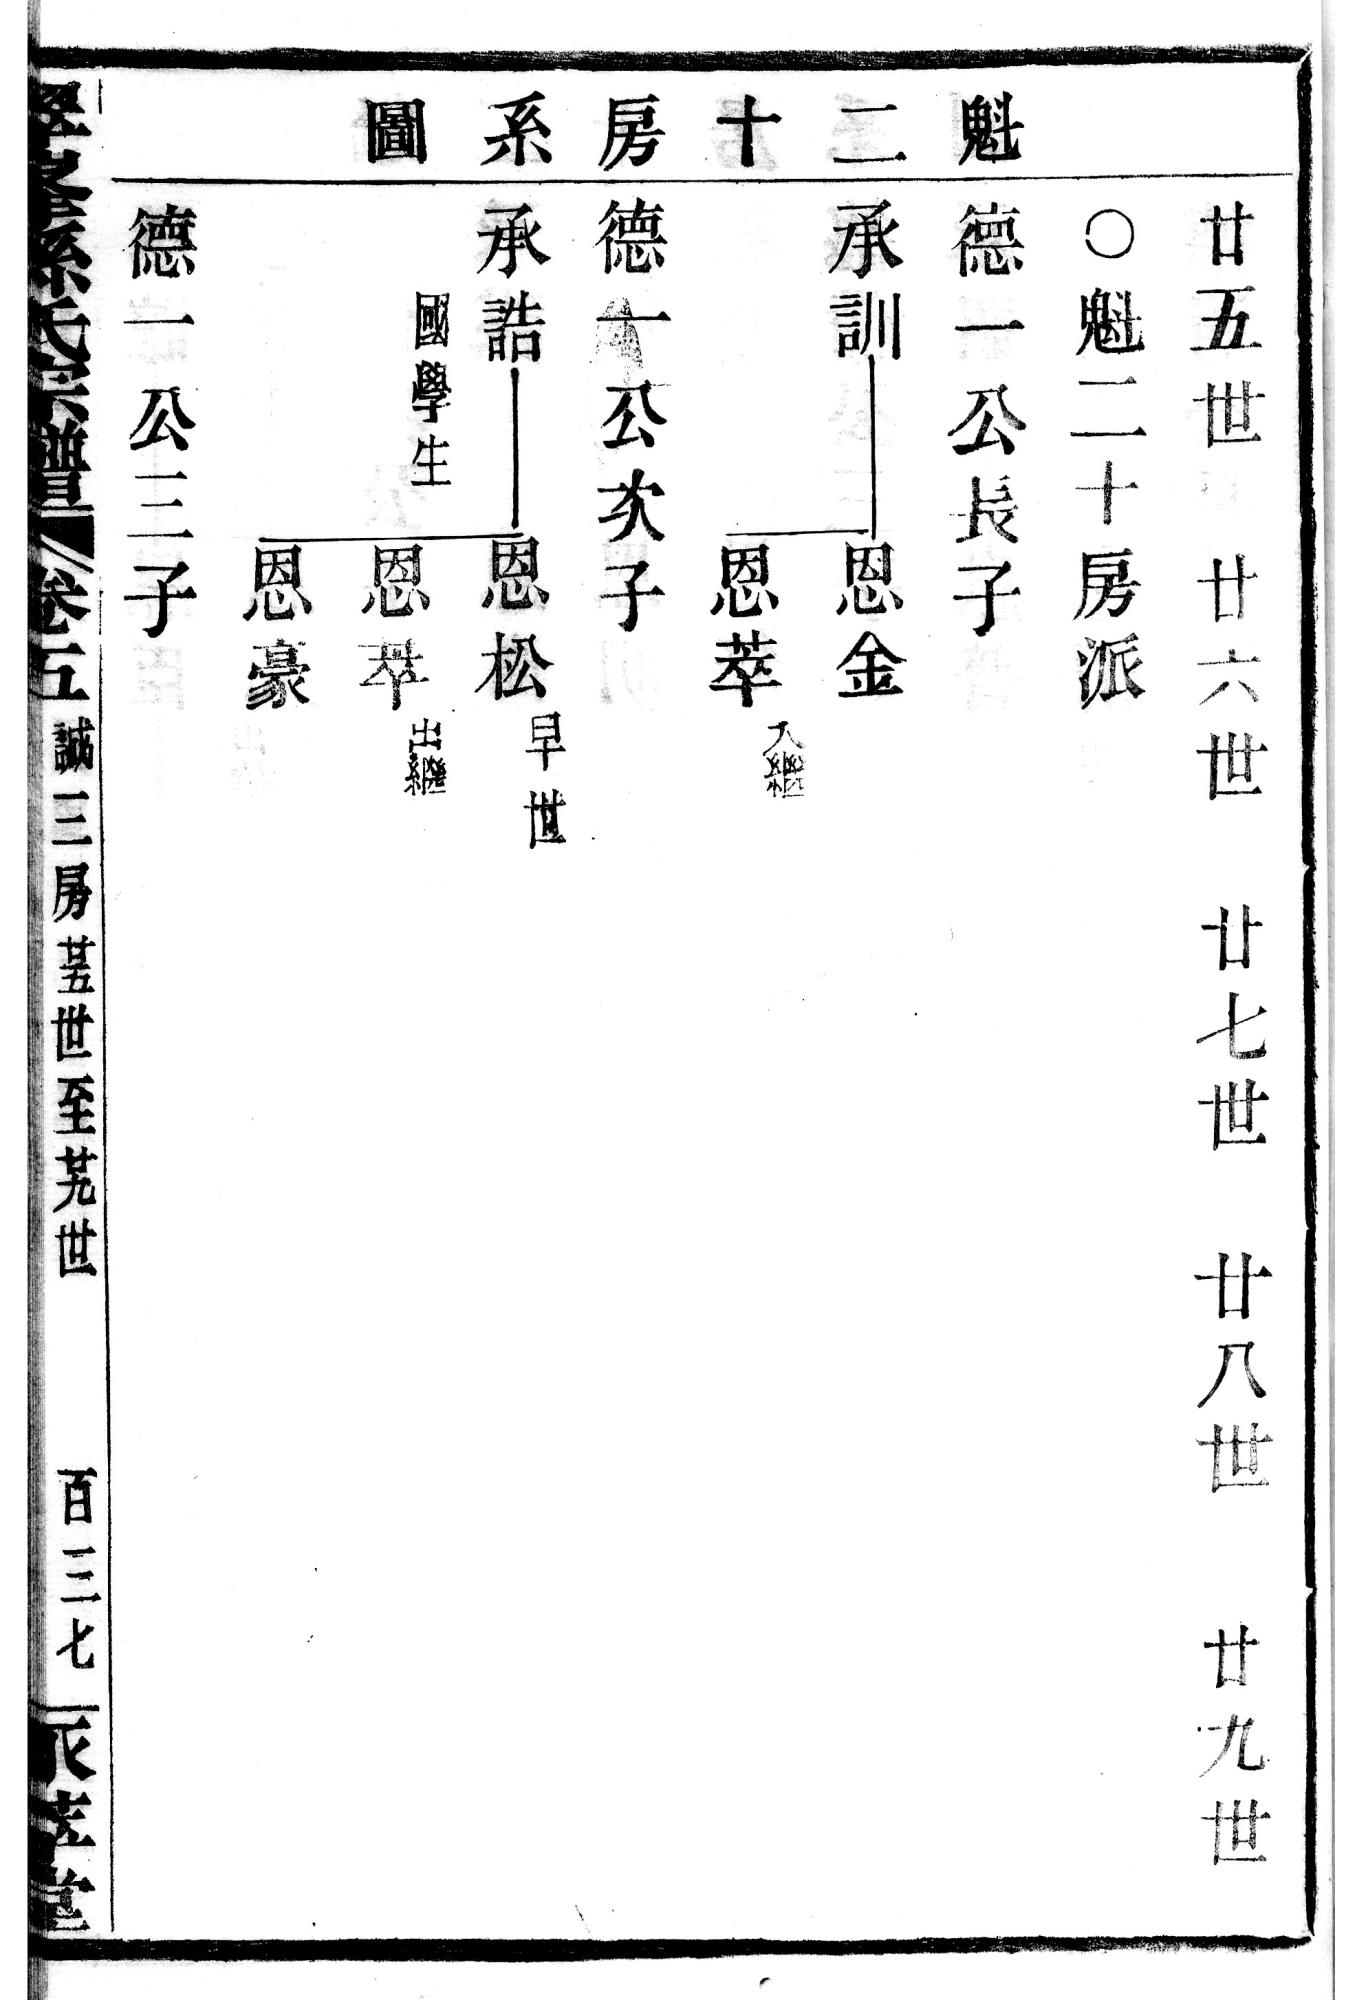 魁二十房系圖
廿五世 廿六世 廿七世 廿八世 廿九世
○魁二十房派
德一公長子
承訓 恩金
恩萃 入繼
德一公次子
承誥 國學生 恩松 早世
恩萃 出繼
恩豪
德一公三子
孫氏宗譜 卷五 誠三房廿五世至廿九世 百三七 堂